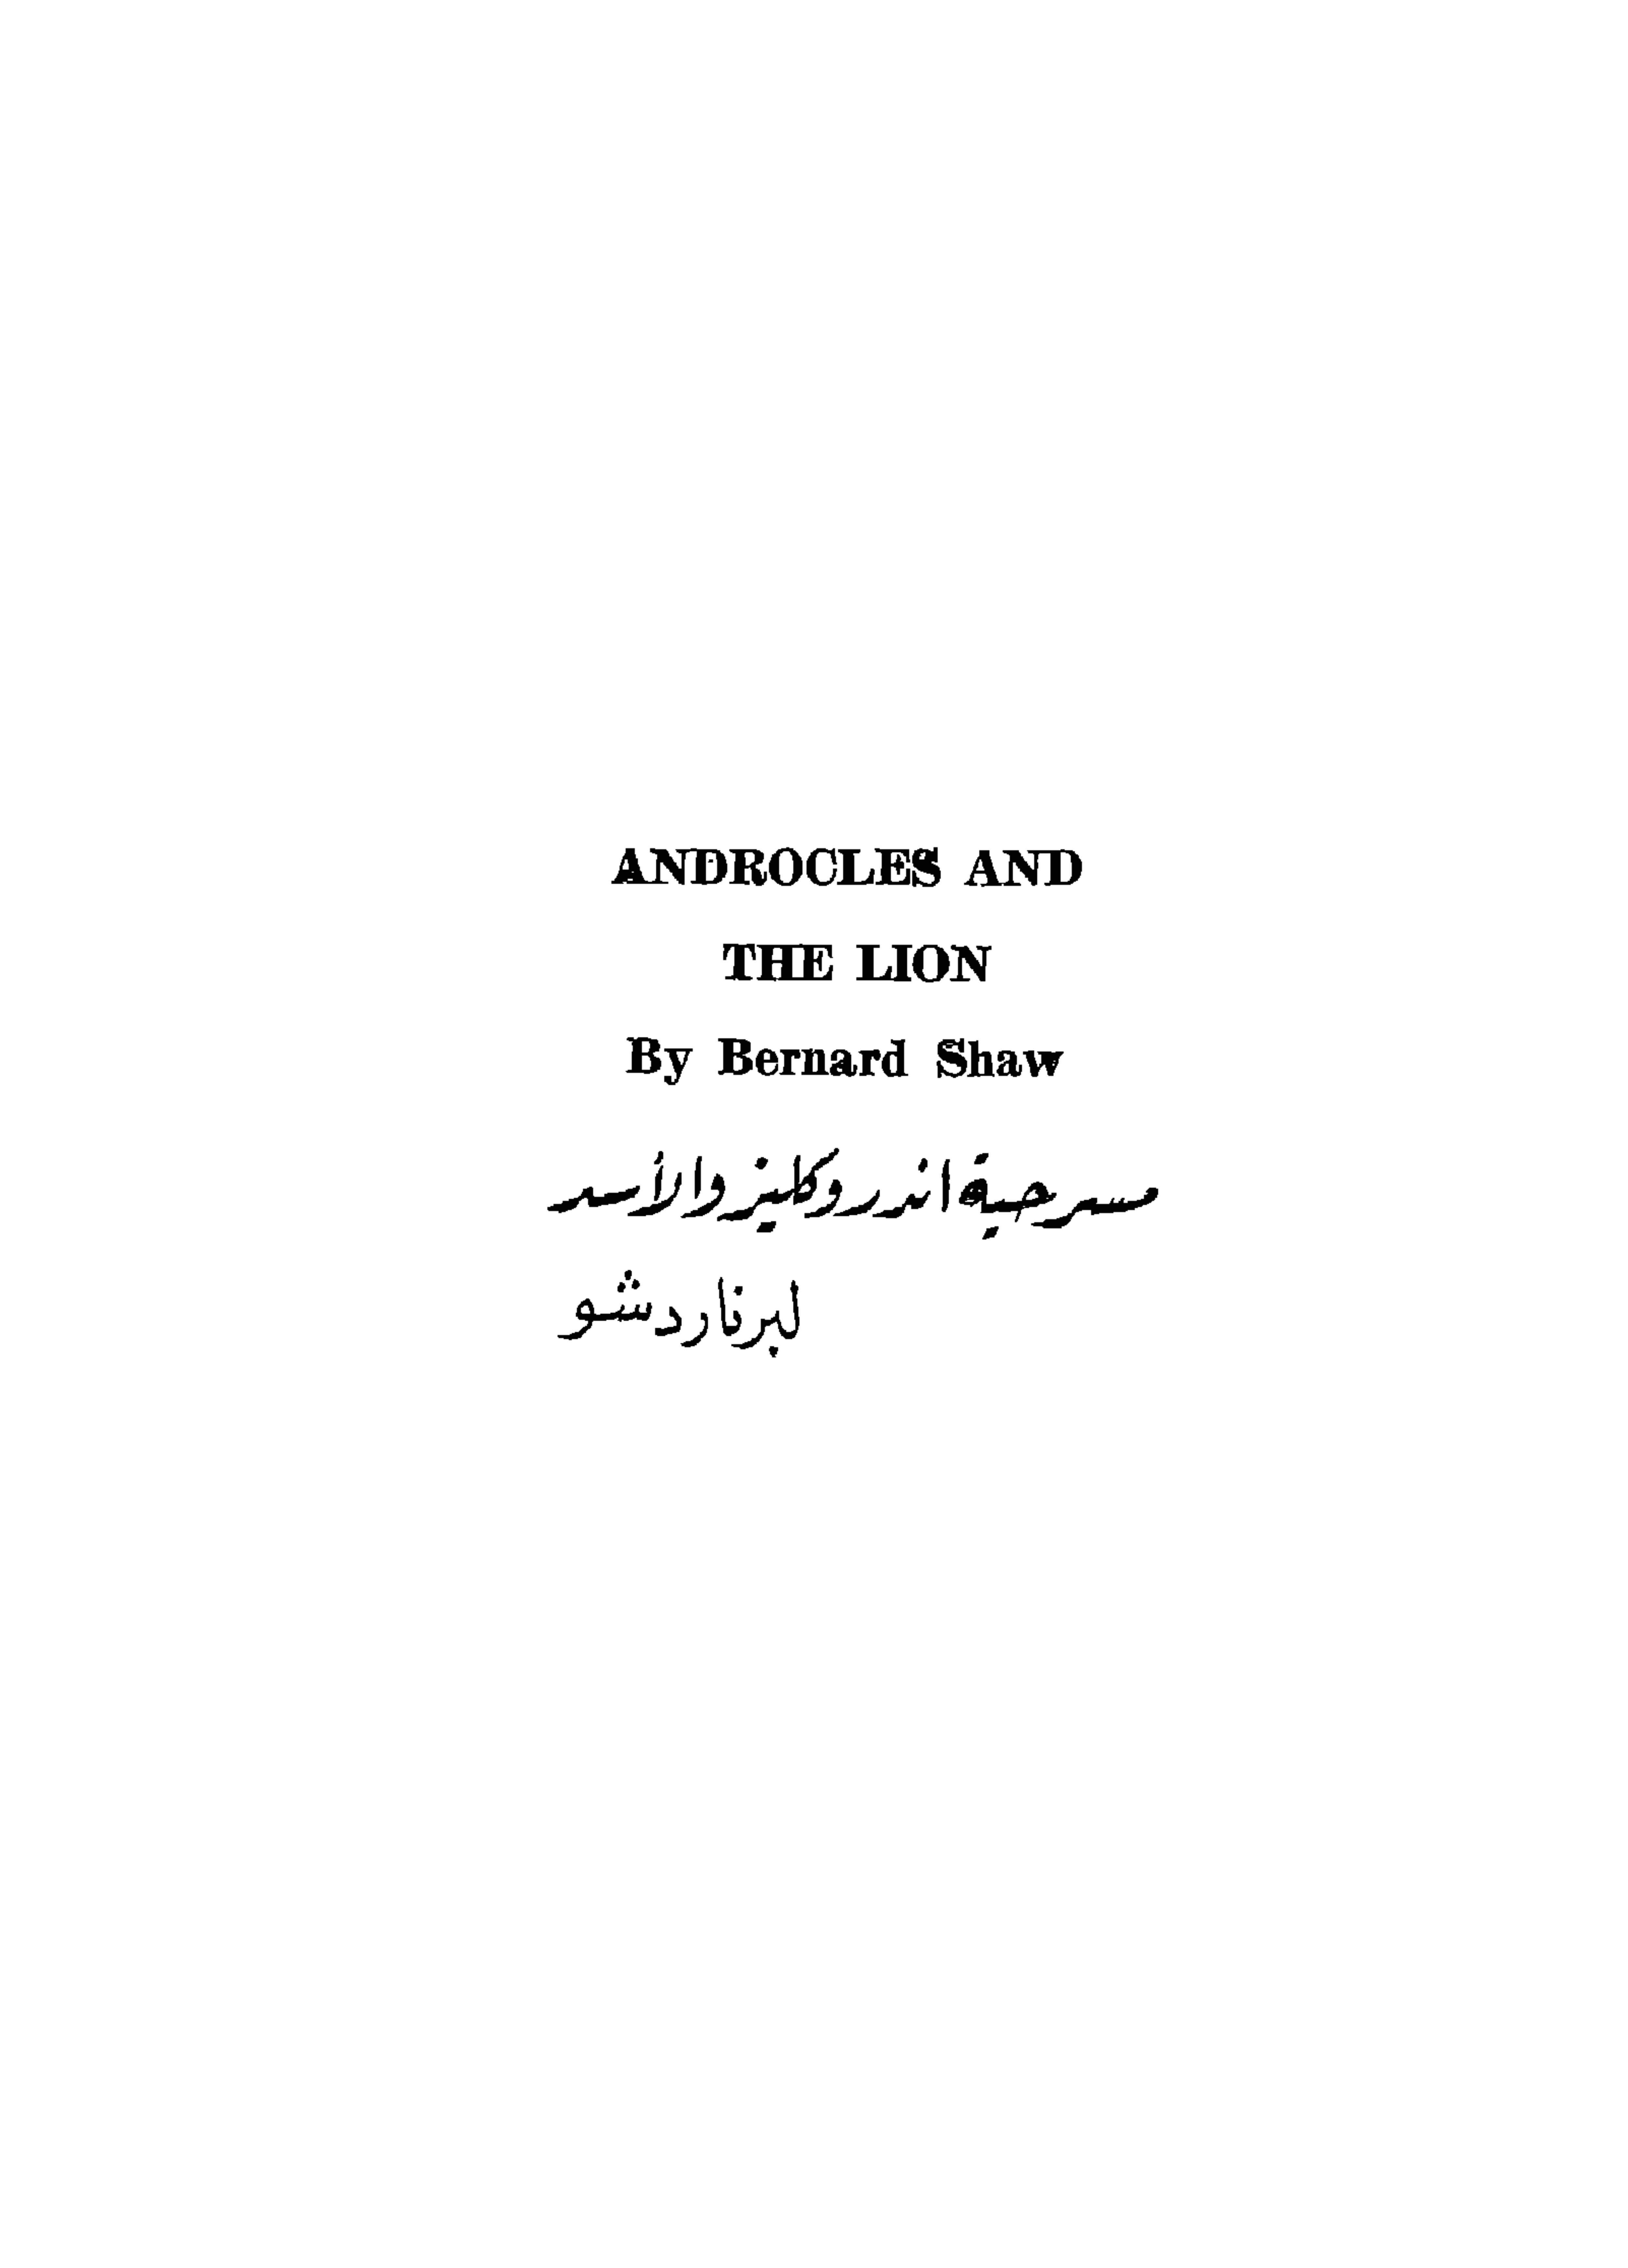 ANDROCLES AND
THE LION
By Bernard Shaw
مسرحية اندروكليز والأسد
لبرنارد شو